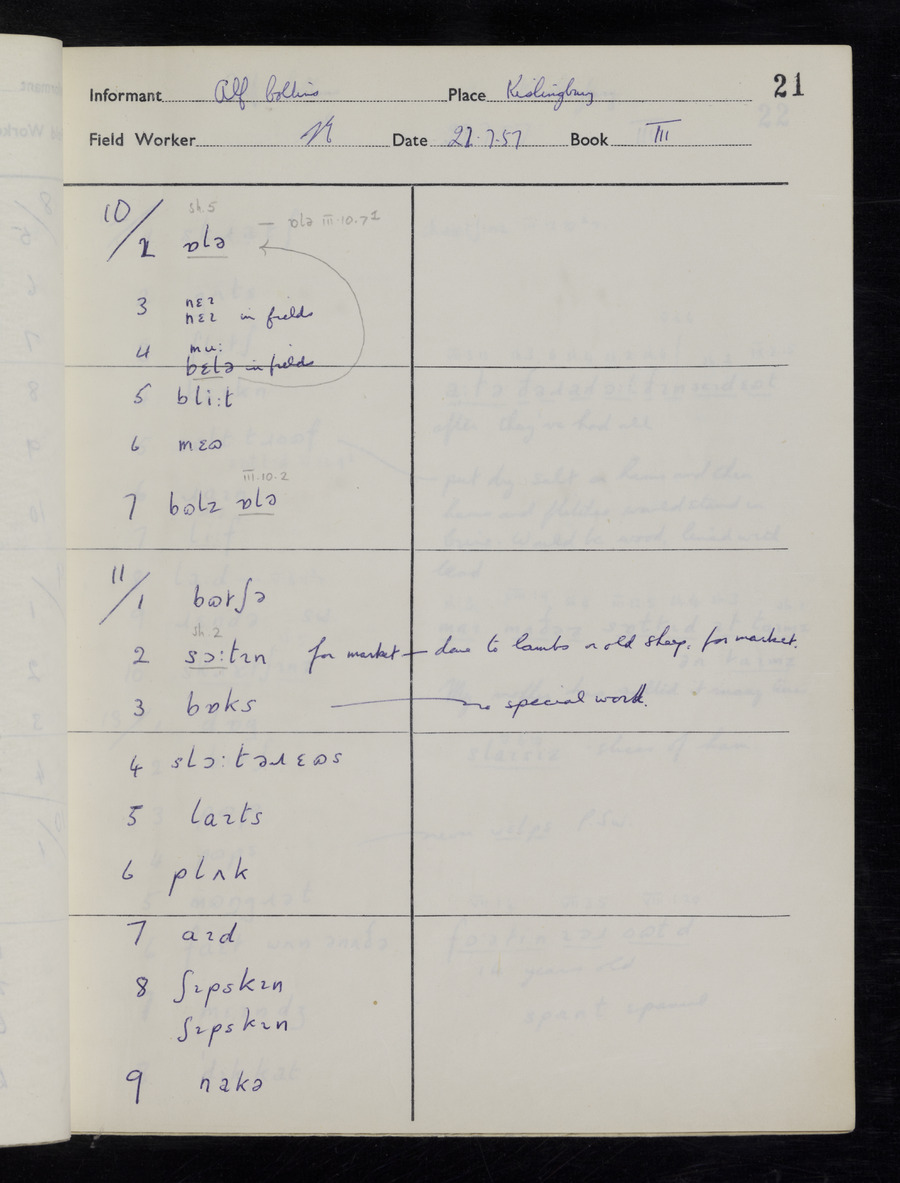 21
Informant Alf Collins Place Kislingbury
Field Worker Date 27.7.57 Book III
10/ sh. 5
2 ɒlə — ɒlə III.10.7¹
3 nɛɪ
nɛɪ in fields
4 mu:
bɛlə in fields
5 bli:t
6 mɛɷ
III.10.2
7 bɷlz ɒlə
11/1 bɷtʃə
sh. 2
2 sɔ:tɪn for market — done to lambs or old sheep, for market.
3 bɒks — special work.
4 slɔ:təɹɛɷs
5 laɪts
6 plʌk
7 aɪd
8 ʃɪpskɪn
ʃɪpskɪn
9 nakə